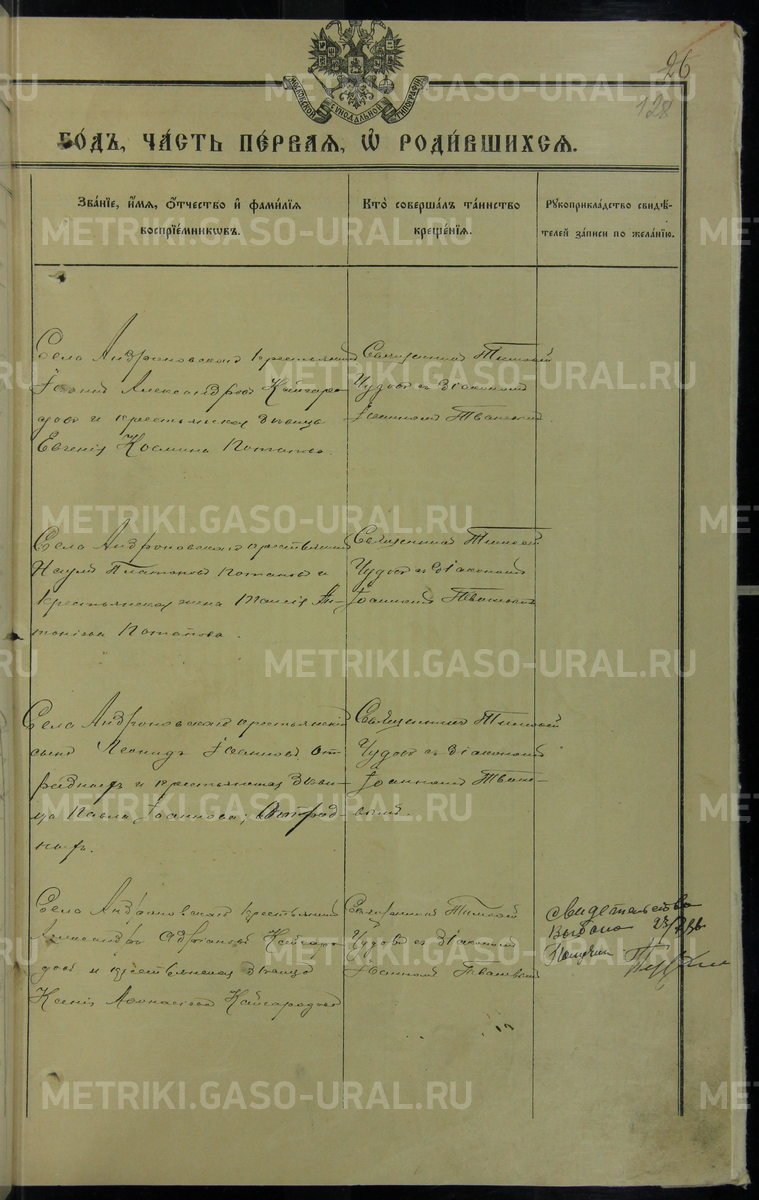 26
128
МОСКОВСКОЙ СѴНОДАЛЬНОЙ ТИПОГРАФІИ
ГО́ДЪ, ЧА́СТЬ ПЕ́РВАЯ, Ѡ҆ РОДИ́ВШИХСЯ.
Зва́нїе, и҆́мя, ѻ҆́тчество и҆ фами́лїя
воспрїе́мникѡвъ.
Кто̀ соверша́лъ та́инство
креще́нїя.
Рꙋкоприкла́дство свидѣ́-
телей за́писи по жела́нїю.
Села Андроновскаго крестьянинъ
Іоаннъ Александровъ Кайгоро-
довъ и крестьянская дѣвица
Евгенія Космина Потапова.
Священникъ Тимоѳей
Чудовъ съ діакономъ
Іоанномъ
Села Андроновскаго крестьянинъ
Наумъ Платоновъ Потаповъ и
крестьянская жена Ан-
тоніева Потапова.
Священникъ Тимоѳей
Чудовъ съ діакономъ
Іоанномъ
Села Андроновскаго крестьянскій
сынъ Леонидъ Іоанновъ От
радныхъ и крестьянская дѣви-
ца Павла Іоаннова, Отрад-
ныхъ.
Священникъ Тимоѳей
Чудовъ съ діакономъ
Іоанномъ
Села Андроновскаго крестьянинъ
Александръ Адріановъ Кайгоро-
довъ и крестьянская дѣвица
Ксенія Аѳонасіева Кайгородова
Священникъ Тимоѳей
Чудовъ съ діакономъ
Іоанномъ
Свидетельство
Выдано
METRIKI.GASO-URAL.RU